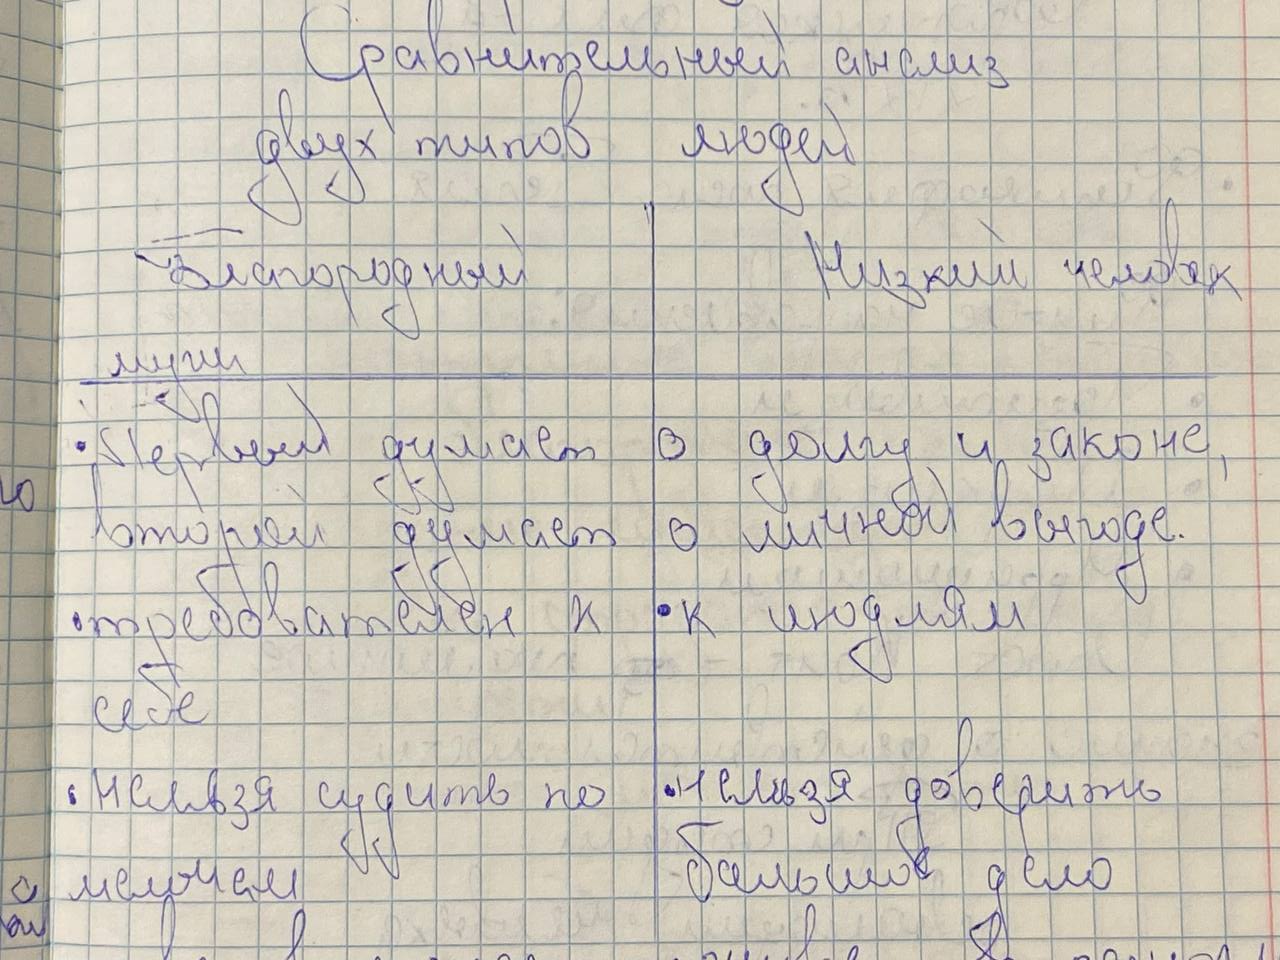 Сравнительный анализ
двух типов людей
Благородный | Низкий человек
муж
• Первый думает о долгу и законе,
второй думает о личной выгоде.
• требователен к • к людям
себе
• нельзя судить по • нельзя доверить
мелочам большое дело